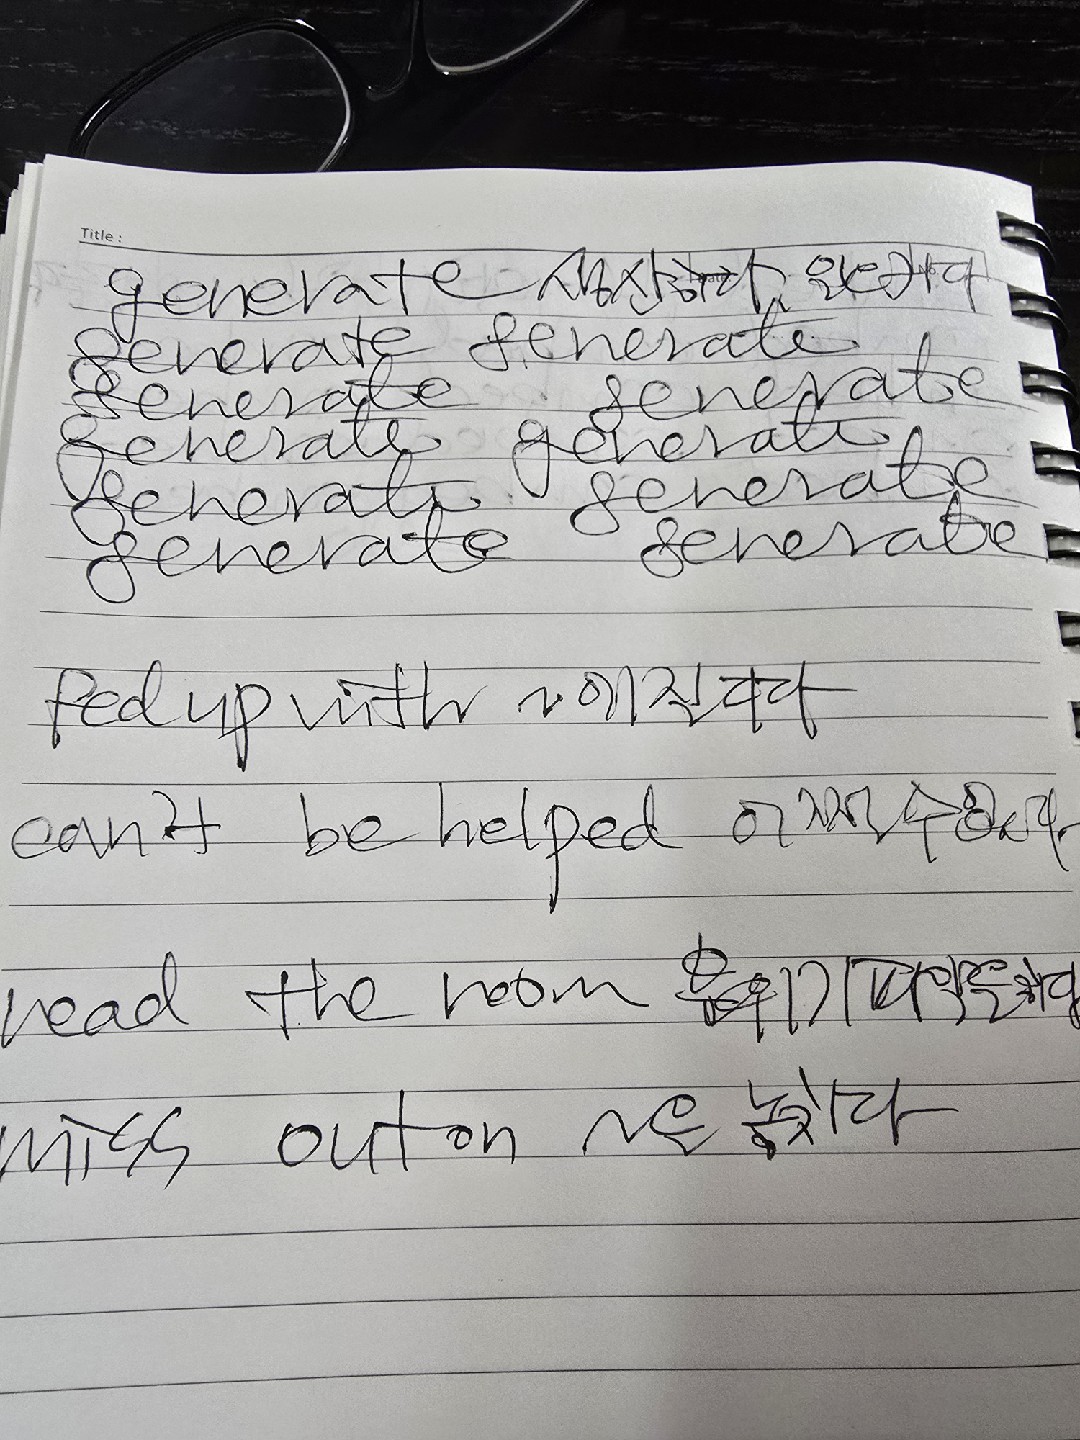 Title :
generate 생산하다,
generate generate
generate generate
generate generate
generate generate
generate generate
fed up with ~에 진
can't be helped 어쩔 수 없다
read the room 분위기 파악을 하다
miss out on ~을 놓치다